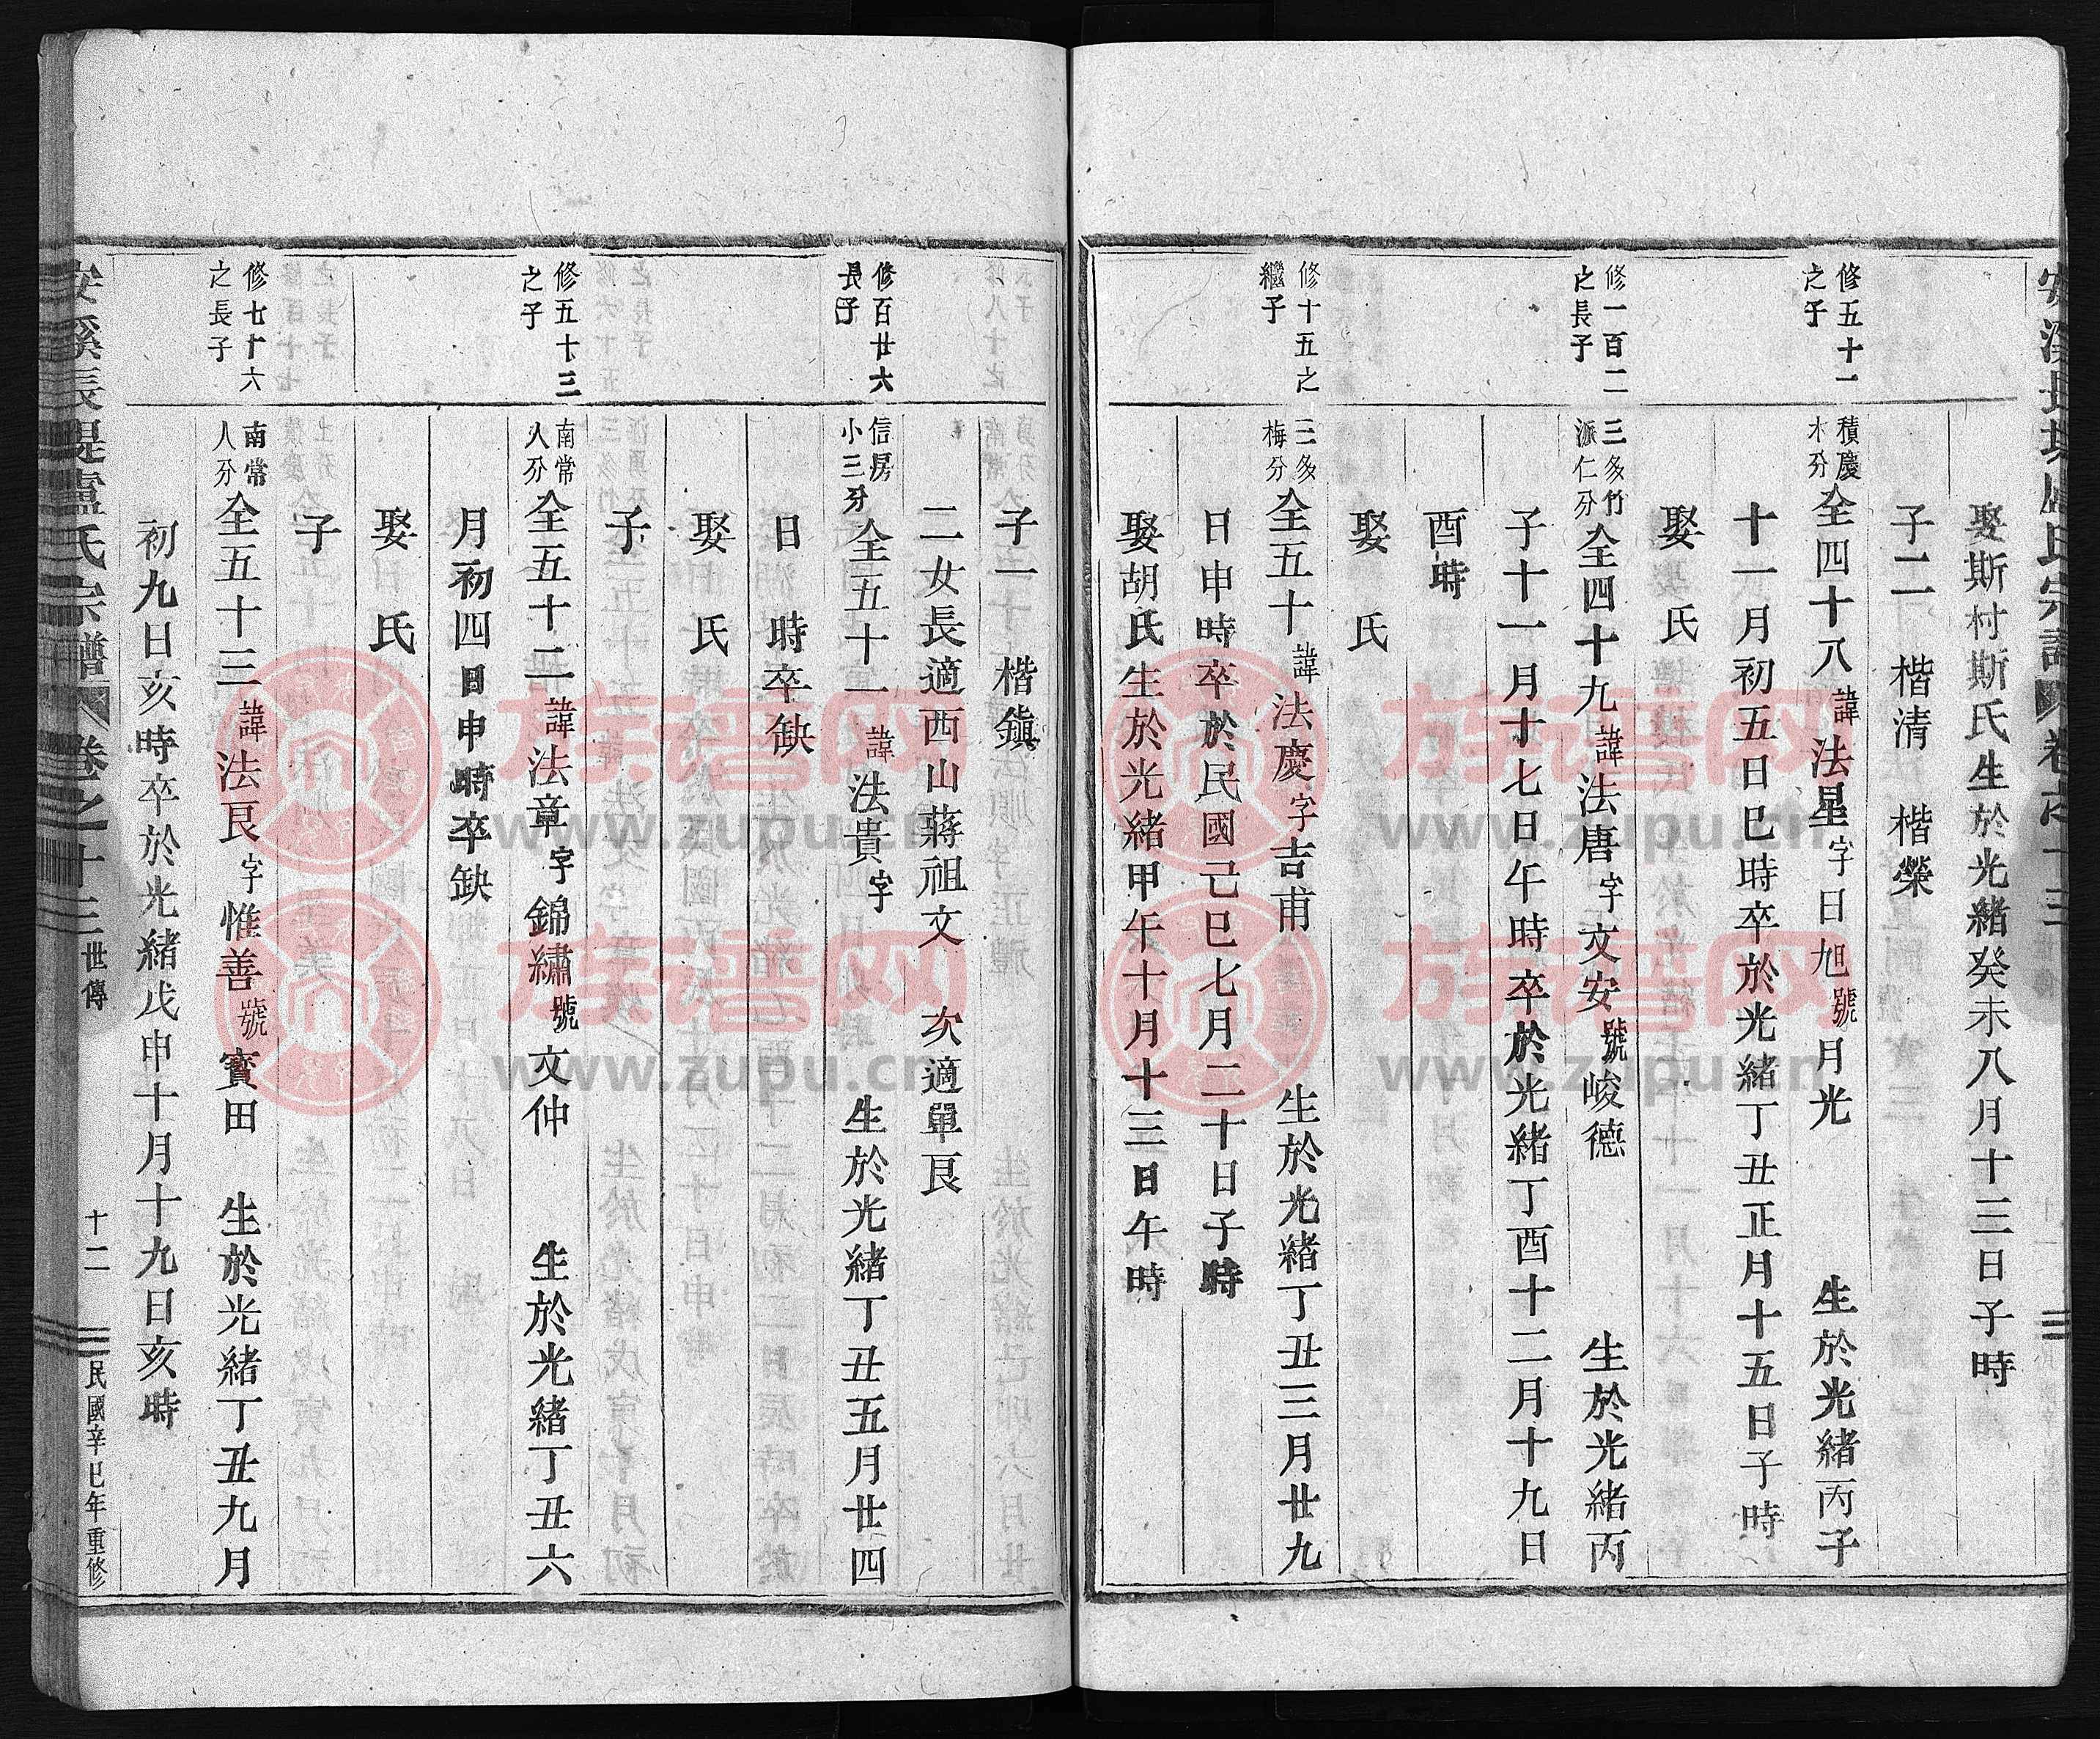 娶斯村斯氏生於光緒癸未八月十三日子時
子二　楷清　楷榮
修五十一之子
積慶木分全四十八諱法星字日旭號月光　生於光緒丙子
十一月初五日巳時卒於光緒丁丑正月十五日子時
娶　氏
修一百二之長子
三多竹派仁分全四十九諱法唐字文安號峻德　生於光緒丙
子十一月十七日午時卒於光緒丁酉十二月十九日
酉時
娶　氏
修十五之繼子
三多梅分全五十諱法慶字吉甫　生於光緒丁丑三月廿九
日申時卒於民國己巳七月二十日子時
娶胡氏生於光緒甲午十月十三日午時
子一　楷鎮
二女長適西山蔣祖文　次適單良
修百廿六長子
信房小三分全五十一諱法貴字　生於光緒丁丑五月廿四
日　時卒缺
娶　氏
子
修五十三之子
南常人分全五十二諱法章字錦繡號文仲　生於光緒丁丑六
月初四日申時卒缺
娶　氏
子
修七十六之長子
南常人分全五十三諱法良字惟善號寶田　生於光緒丁丑九月
初九日亥時卒於光緒戊申十月十九日亥時
安溪長堤盧氏宗譜　卷之十三　世傳　十二　民國辛巳年重修
族谱网
www.zupu.cn
族谱网
www.zupu.cn
族谱网
www.zupu.cn
族谱网
www.zupu.cn